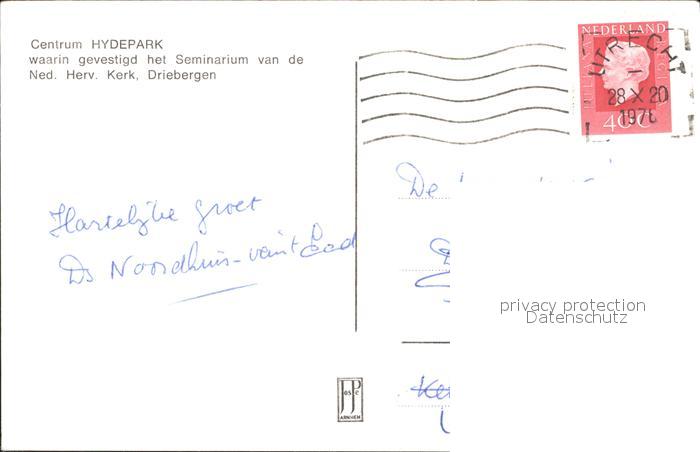 Centrum HYDEPARK
waarin gevestigd het Seminarium van de
Ned. Herv. Kerk, Driebergen
NEDERLAND
JULIANA REGINA
40c
UTRECHT
28 X 20
1976
Hartelijke groet
Ds Noordhuis-van't
De
privacy protection
Datenschutz
JosPe
ARNHEM